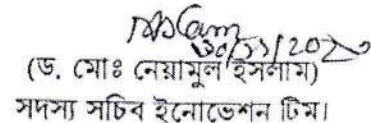 ৩০/১১/২০২০
(ড. মোঃ নেয়ামুল ইসলাম)
সদস্য সচিব ইনোভেশন টিম।